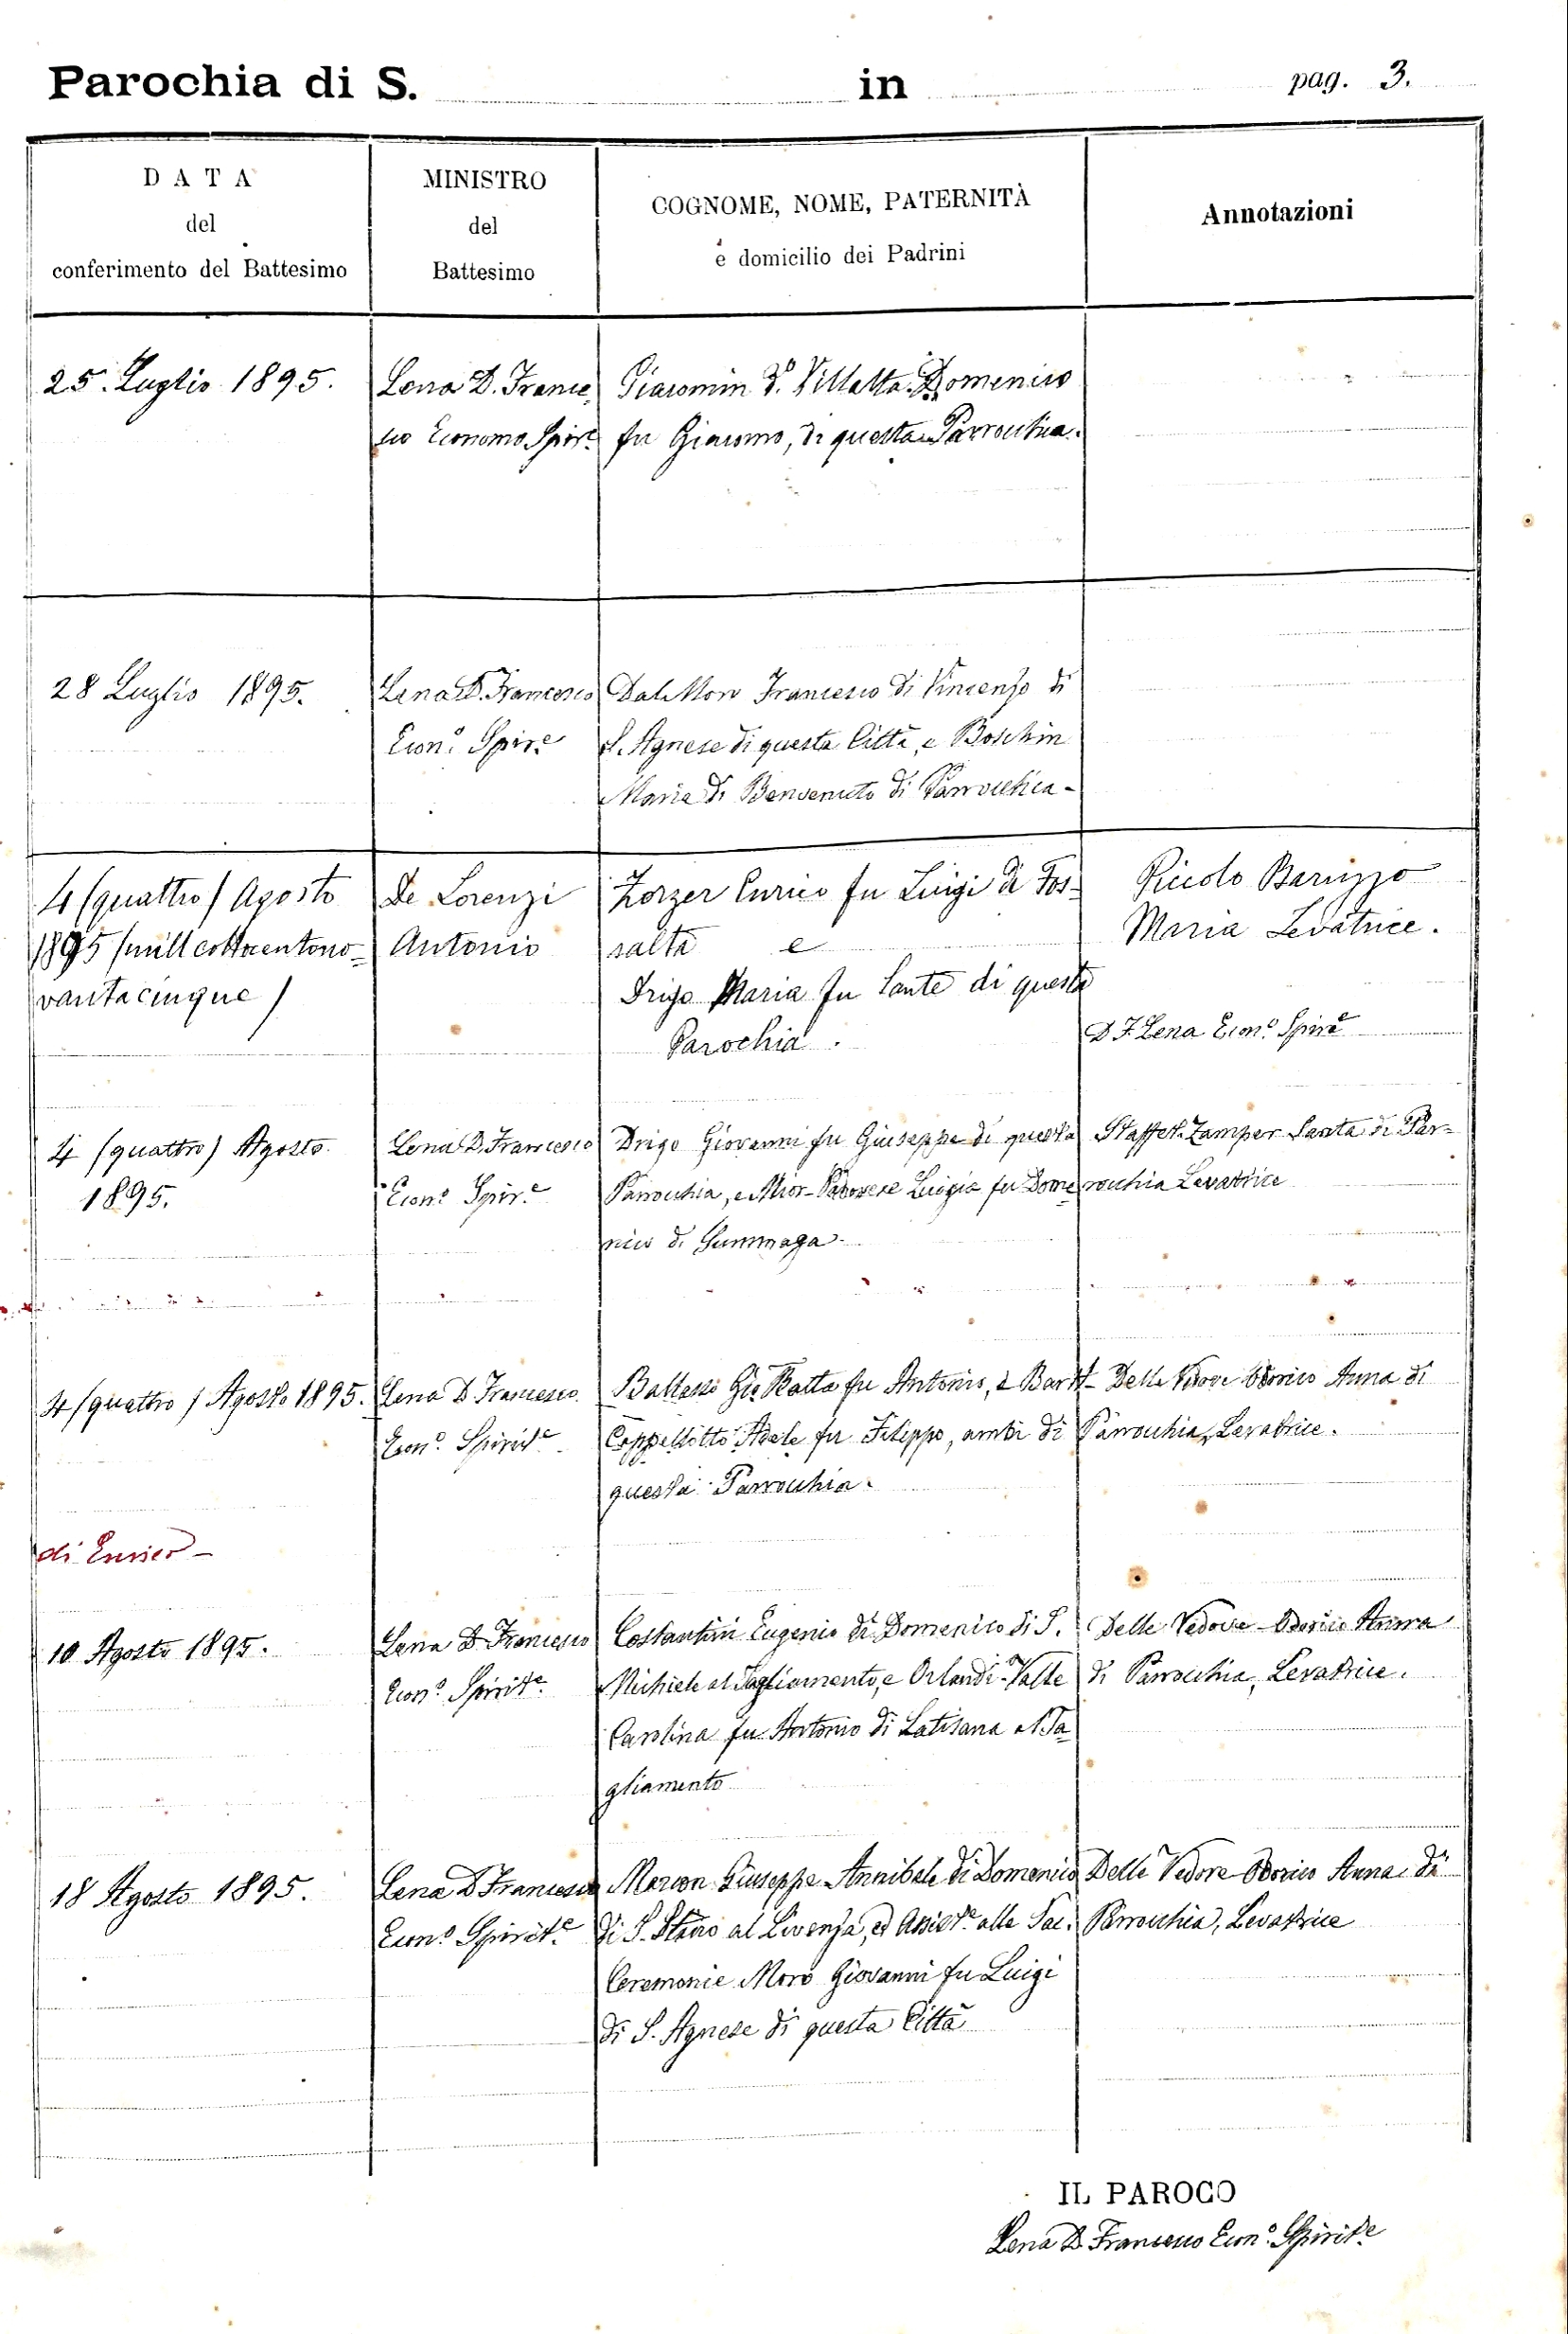 Parochia di S. in pag. 3.
DATA
del
conferimento del Battesimo
MINISTRO
del
Battesimo
COGNOME, NOME, PATERNITÀ
e domicilio dei Padrini
Annotazioni
25. Luglio 1895.
Lena D. France
sco Economo Spir.e
Giacomin d.o Villalta Domenico
fu Giacomo, di questa Parrochia.
28 Luglio 1895.
Lena D. Francesco
Econ.o Spir.e
Dal Moro Francesco di Vincenzo di
S. Agnese di questa Città, e Boschin
Maria di Benvenuto di Parrochia-
4 (quattro) Agosto
1895 (milleottocentono-
vantacinque)
De Lorenzi
Antonio
Zorzer Enrico fu Luigi di Fos-
salta e
Drigo Maria fu Sante di questa
Parochia.
Piccolo Baruzzo
Maria Levatrice.
D. F. Lena Econ.o Spir.e
4 (quattro) Agosto
1895.
Lena D. Francesco
Econ.o Spir.e
Drigo Giovanni fu Giuseppe di questa
Parrochia, e Mior-Padovese Luigia fu Dome
nico di Summaga.
Staffet. Zamper Santa di Par-
rochia Levatrice
4 (quattro) Agosto 1895.
Lena D. Francesco
Econ.o Spirit.e
Gio Batta fu Antonio, e
Adele fu Filippo, ambi di
questa Parrochia.
Delle Vedove Odorico Anna di
Parrochia, Levatrice.
di Enrico -
10 Agosto 1895.
Lena D. Francesco
Econ.o Spirit.e
Costantini Eugenio di Domenico di S.
Michiele al Tagliamento, e Orlandi-Valle
Carolina fu Antonio di Latisana al Ta
gliamento
Delle Vedove Odorico Anna
di Parrochia, Levatrice.
18 Agosto 1895.
Lena D. Francesco
Econ.o Spirit.e
Marcon Giuseppe Annibale di Domenico
di S. Stino al Livenza, ed Assist.e alle Sac.
Ceremonie Moro Giovanni fu Luigi
di S. Agnese di questa Città
Delle Vedove Odorico Anna di
Parrochia, Levatrice
IL PAROCO
Lena D. Francesco Econ.o Spirit.e